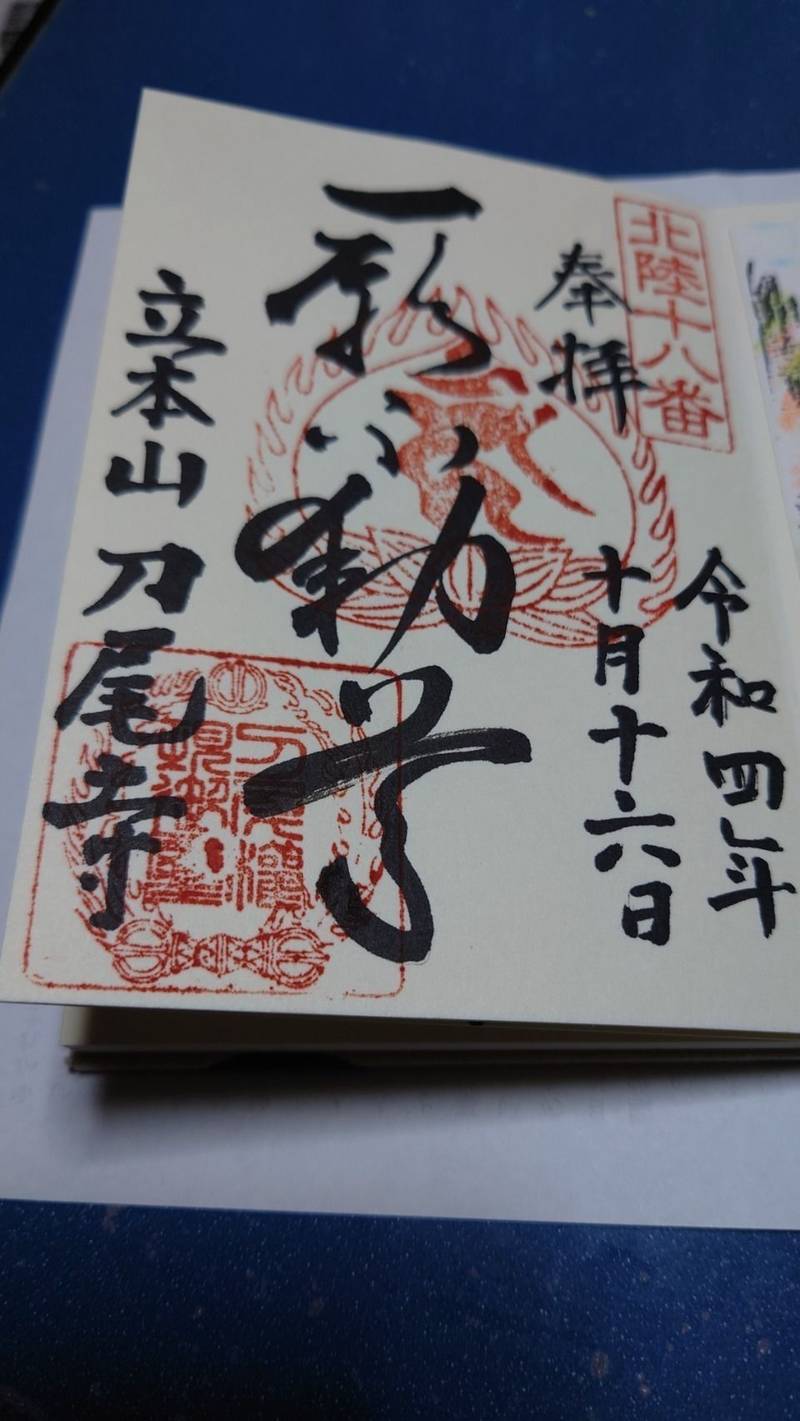 北陸十八番
奉拝
令和四年
十月十六日
一願不動尊
立本山 刀尾寺